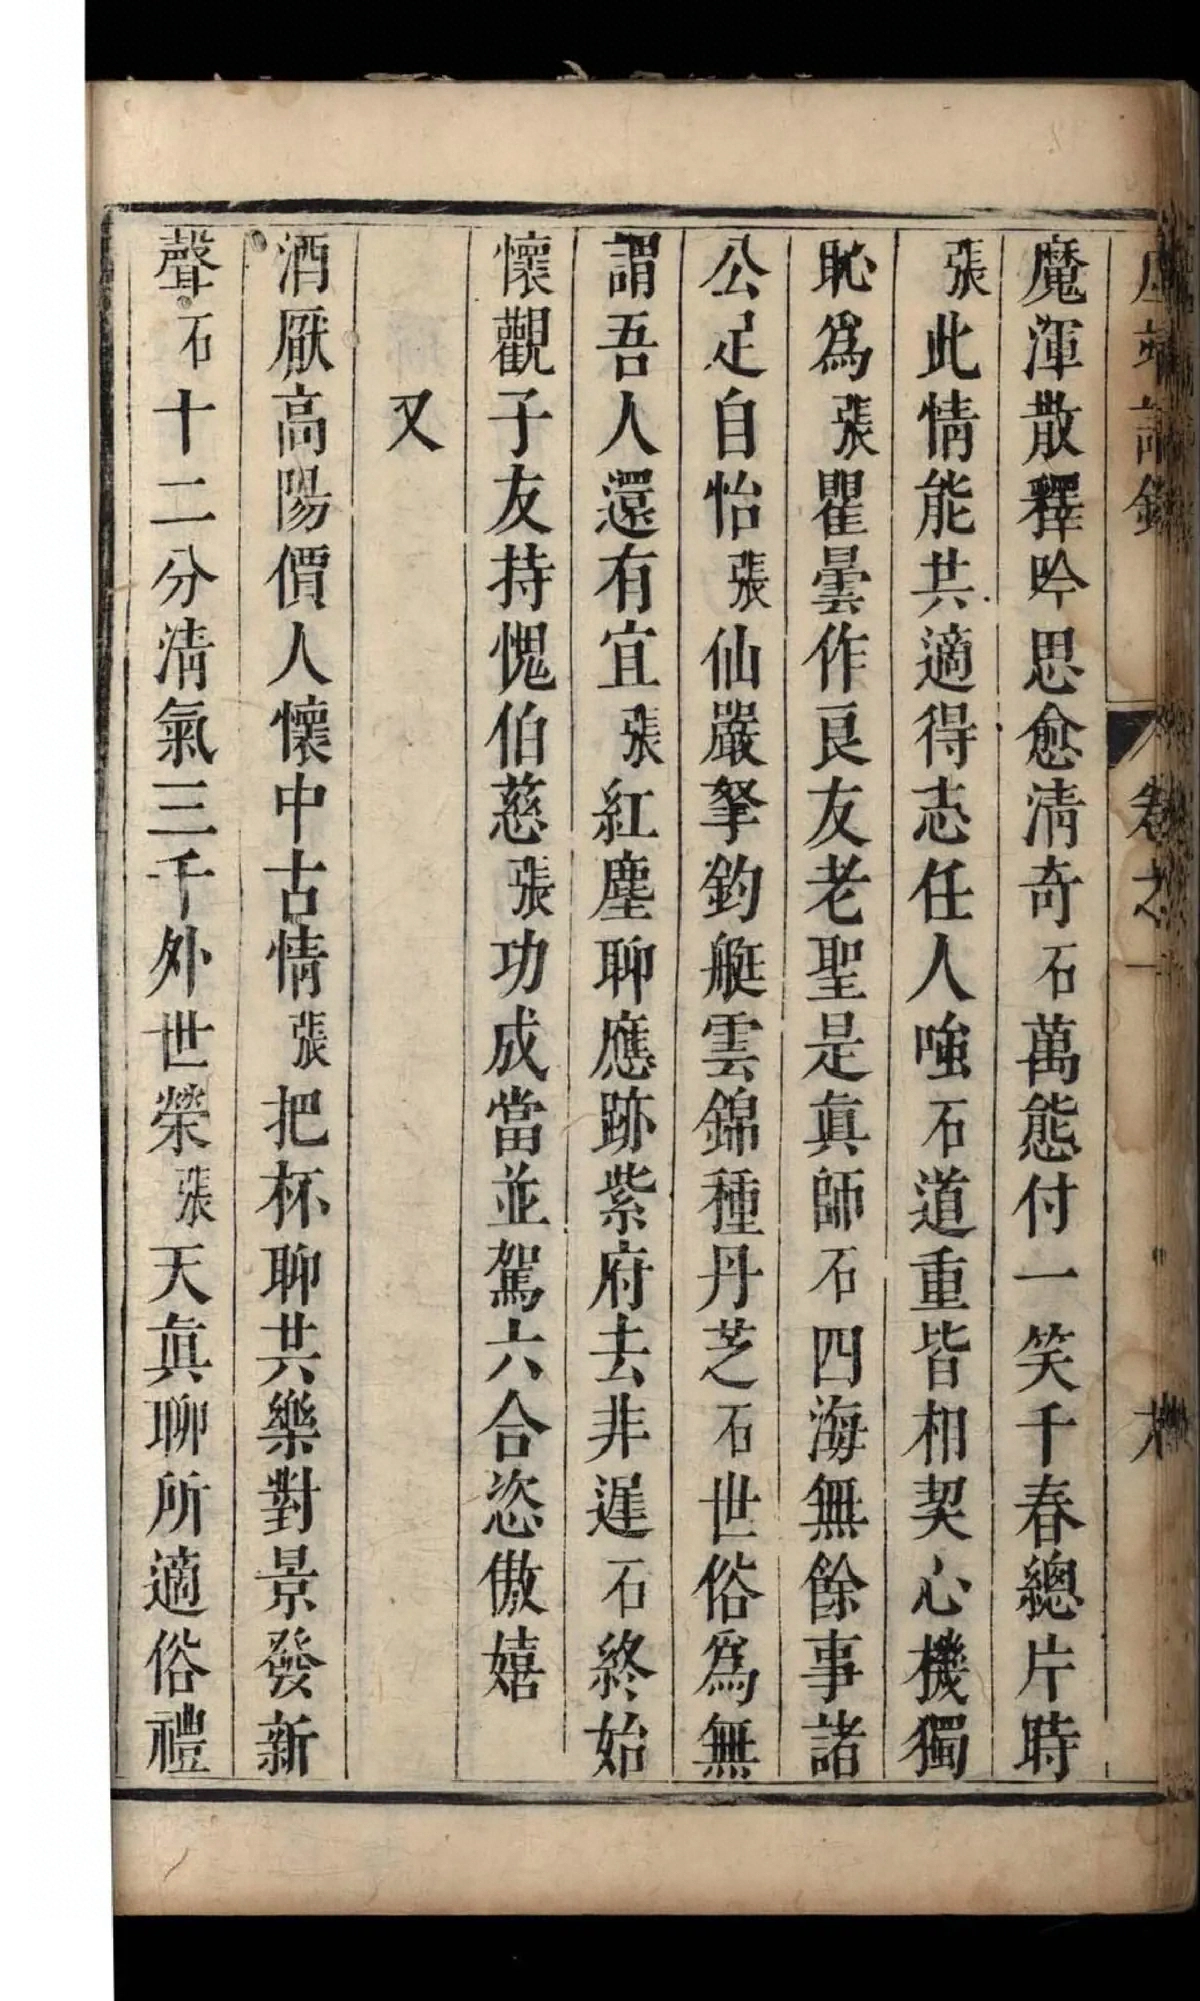 卷之一
魔渾散釋吟思愈清奇石萬態付一笑千春總片時
張此情能共適得志任人嗤石道重皆相契心機獨
恥爲張瞿曇作良友老聖是真師石四海無餘事諸
公足自怡張仙嚴拏釣艇雲錦種丹芝石世俗爲無
謂吾人還有宜張紅塵聊應跡紫府去非遲石終始
懷觀子友持愧伯慈張功成當並駕六合恣傲嬉
又
酒厭高陽價人懷中古情張把杯聊共樂對景發新
聲石十二分清氣三千外世榮張天真聊所適俗禮